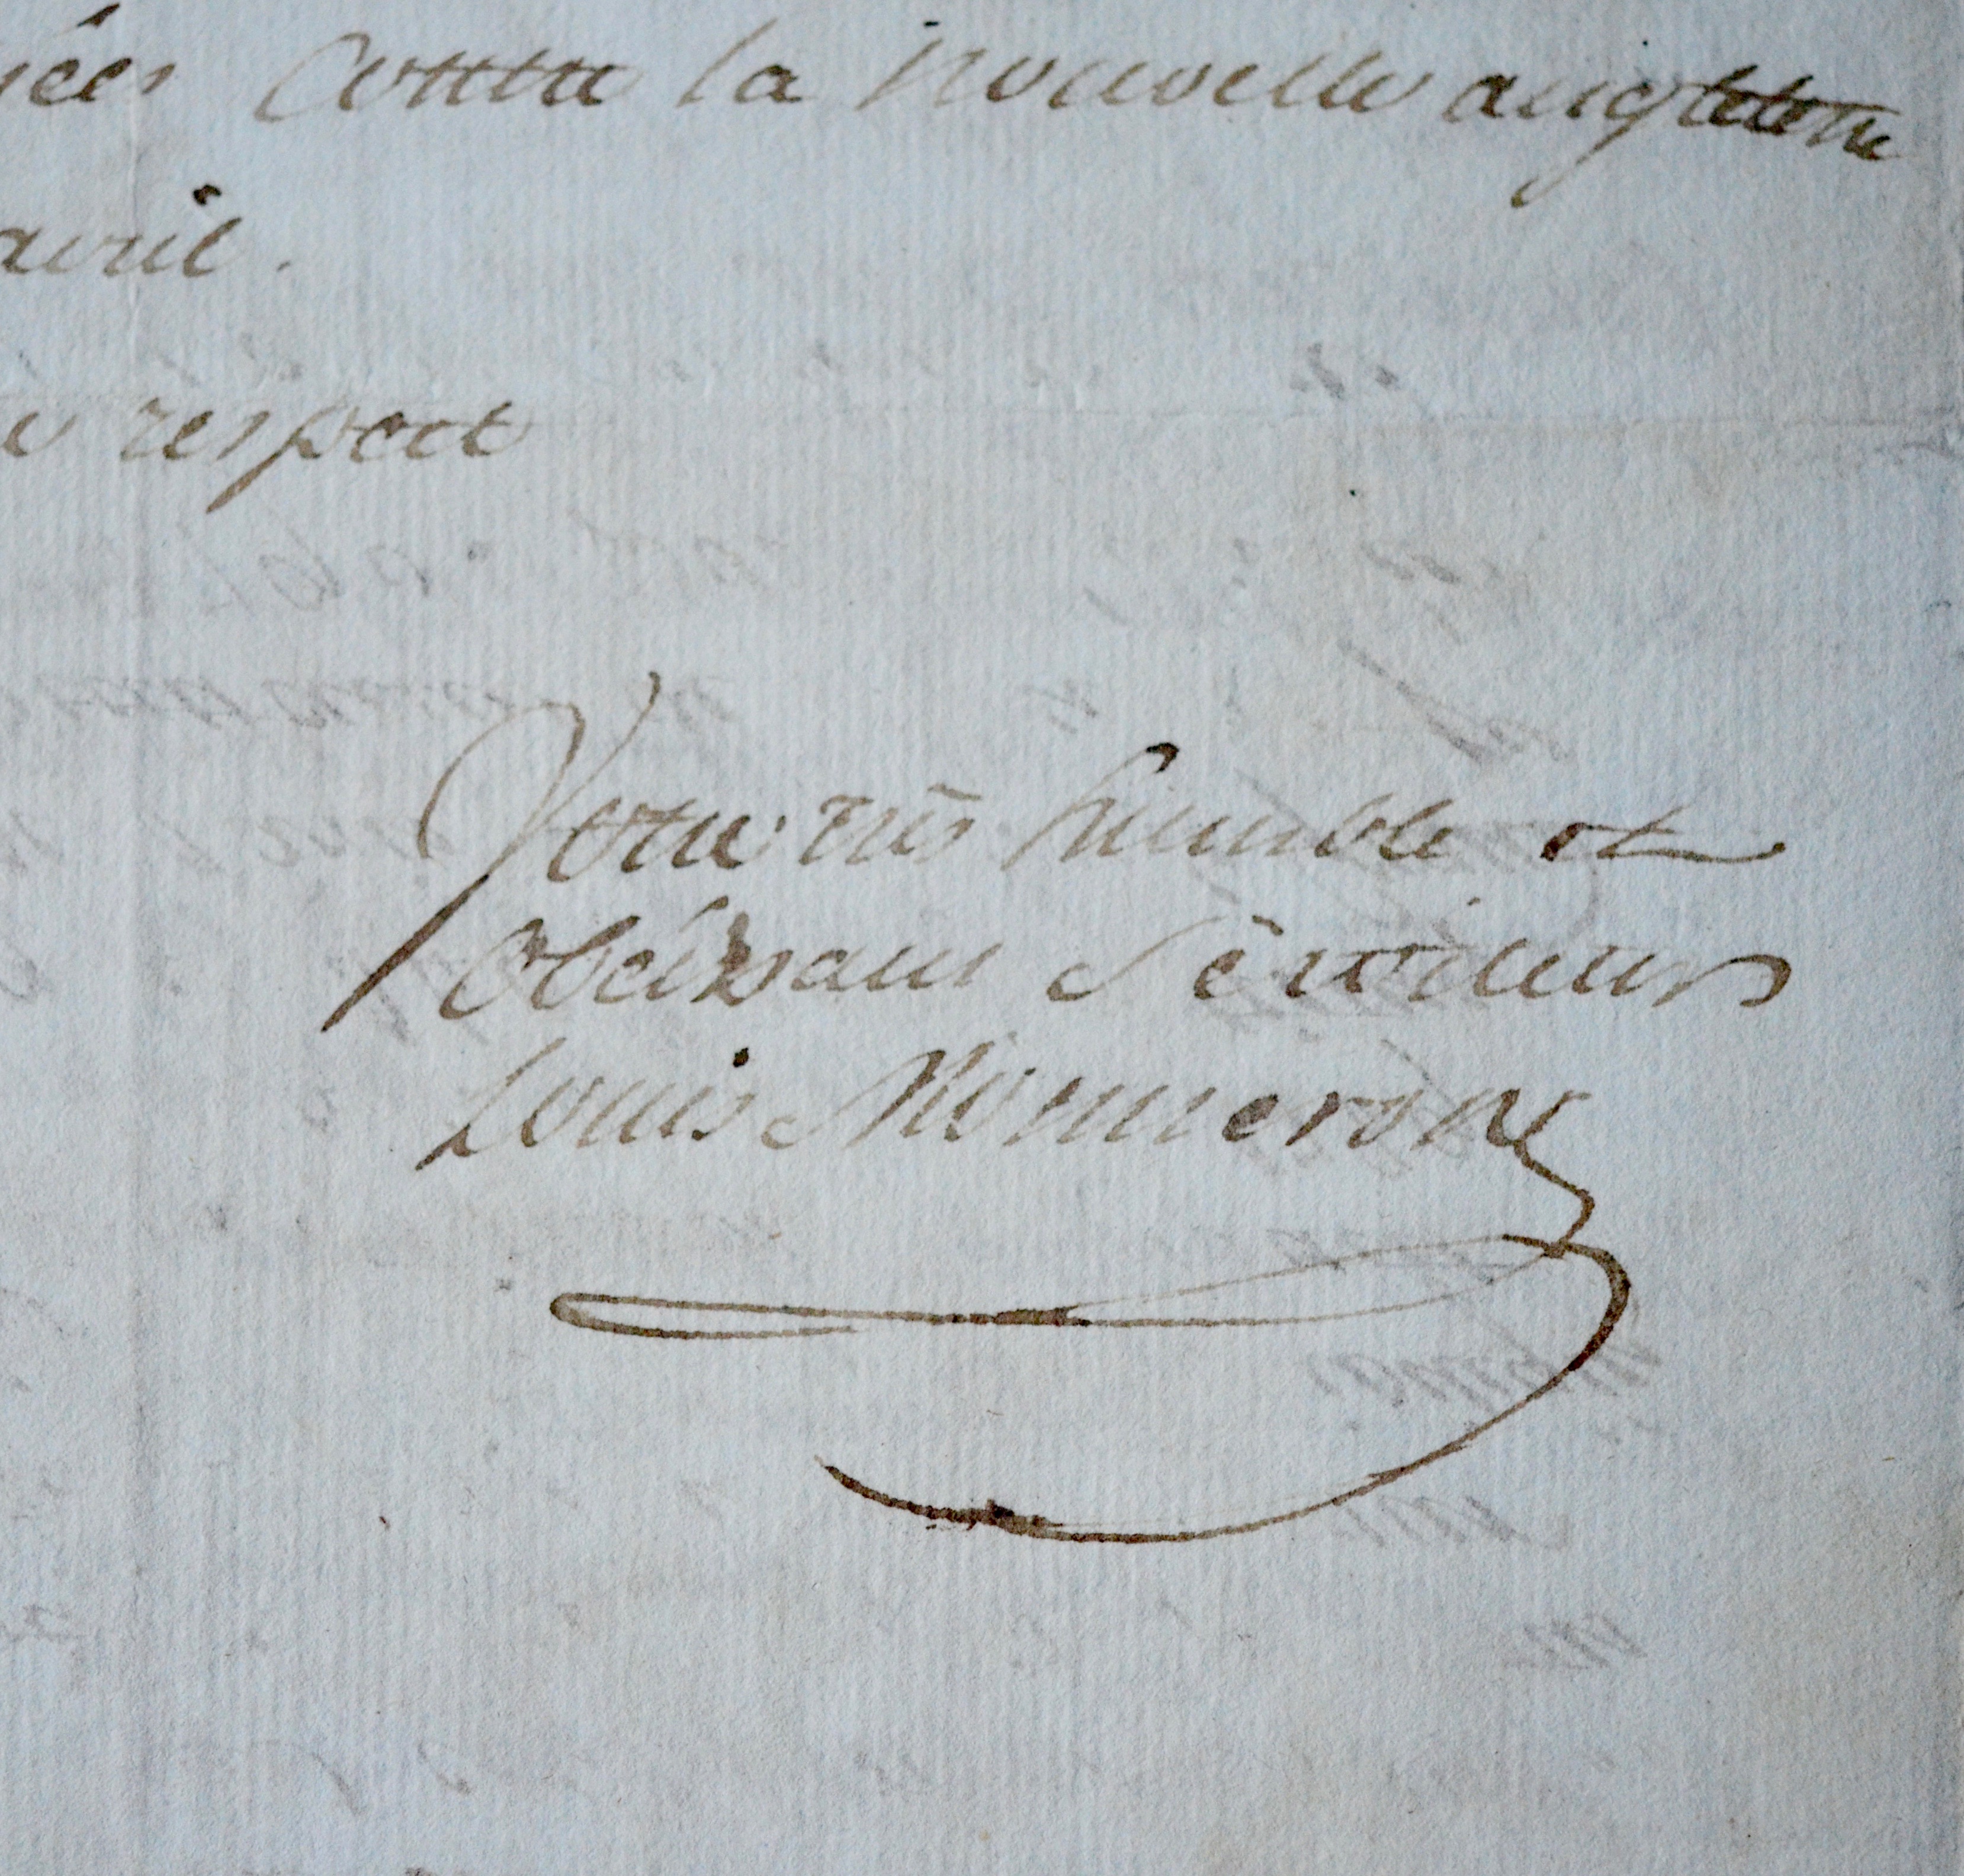 contre la nouvelle angleterre
avril.
respect
Votre très humble et
obéissant Serviteur
Louis Monneron